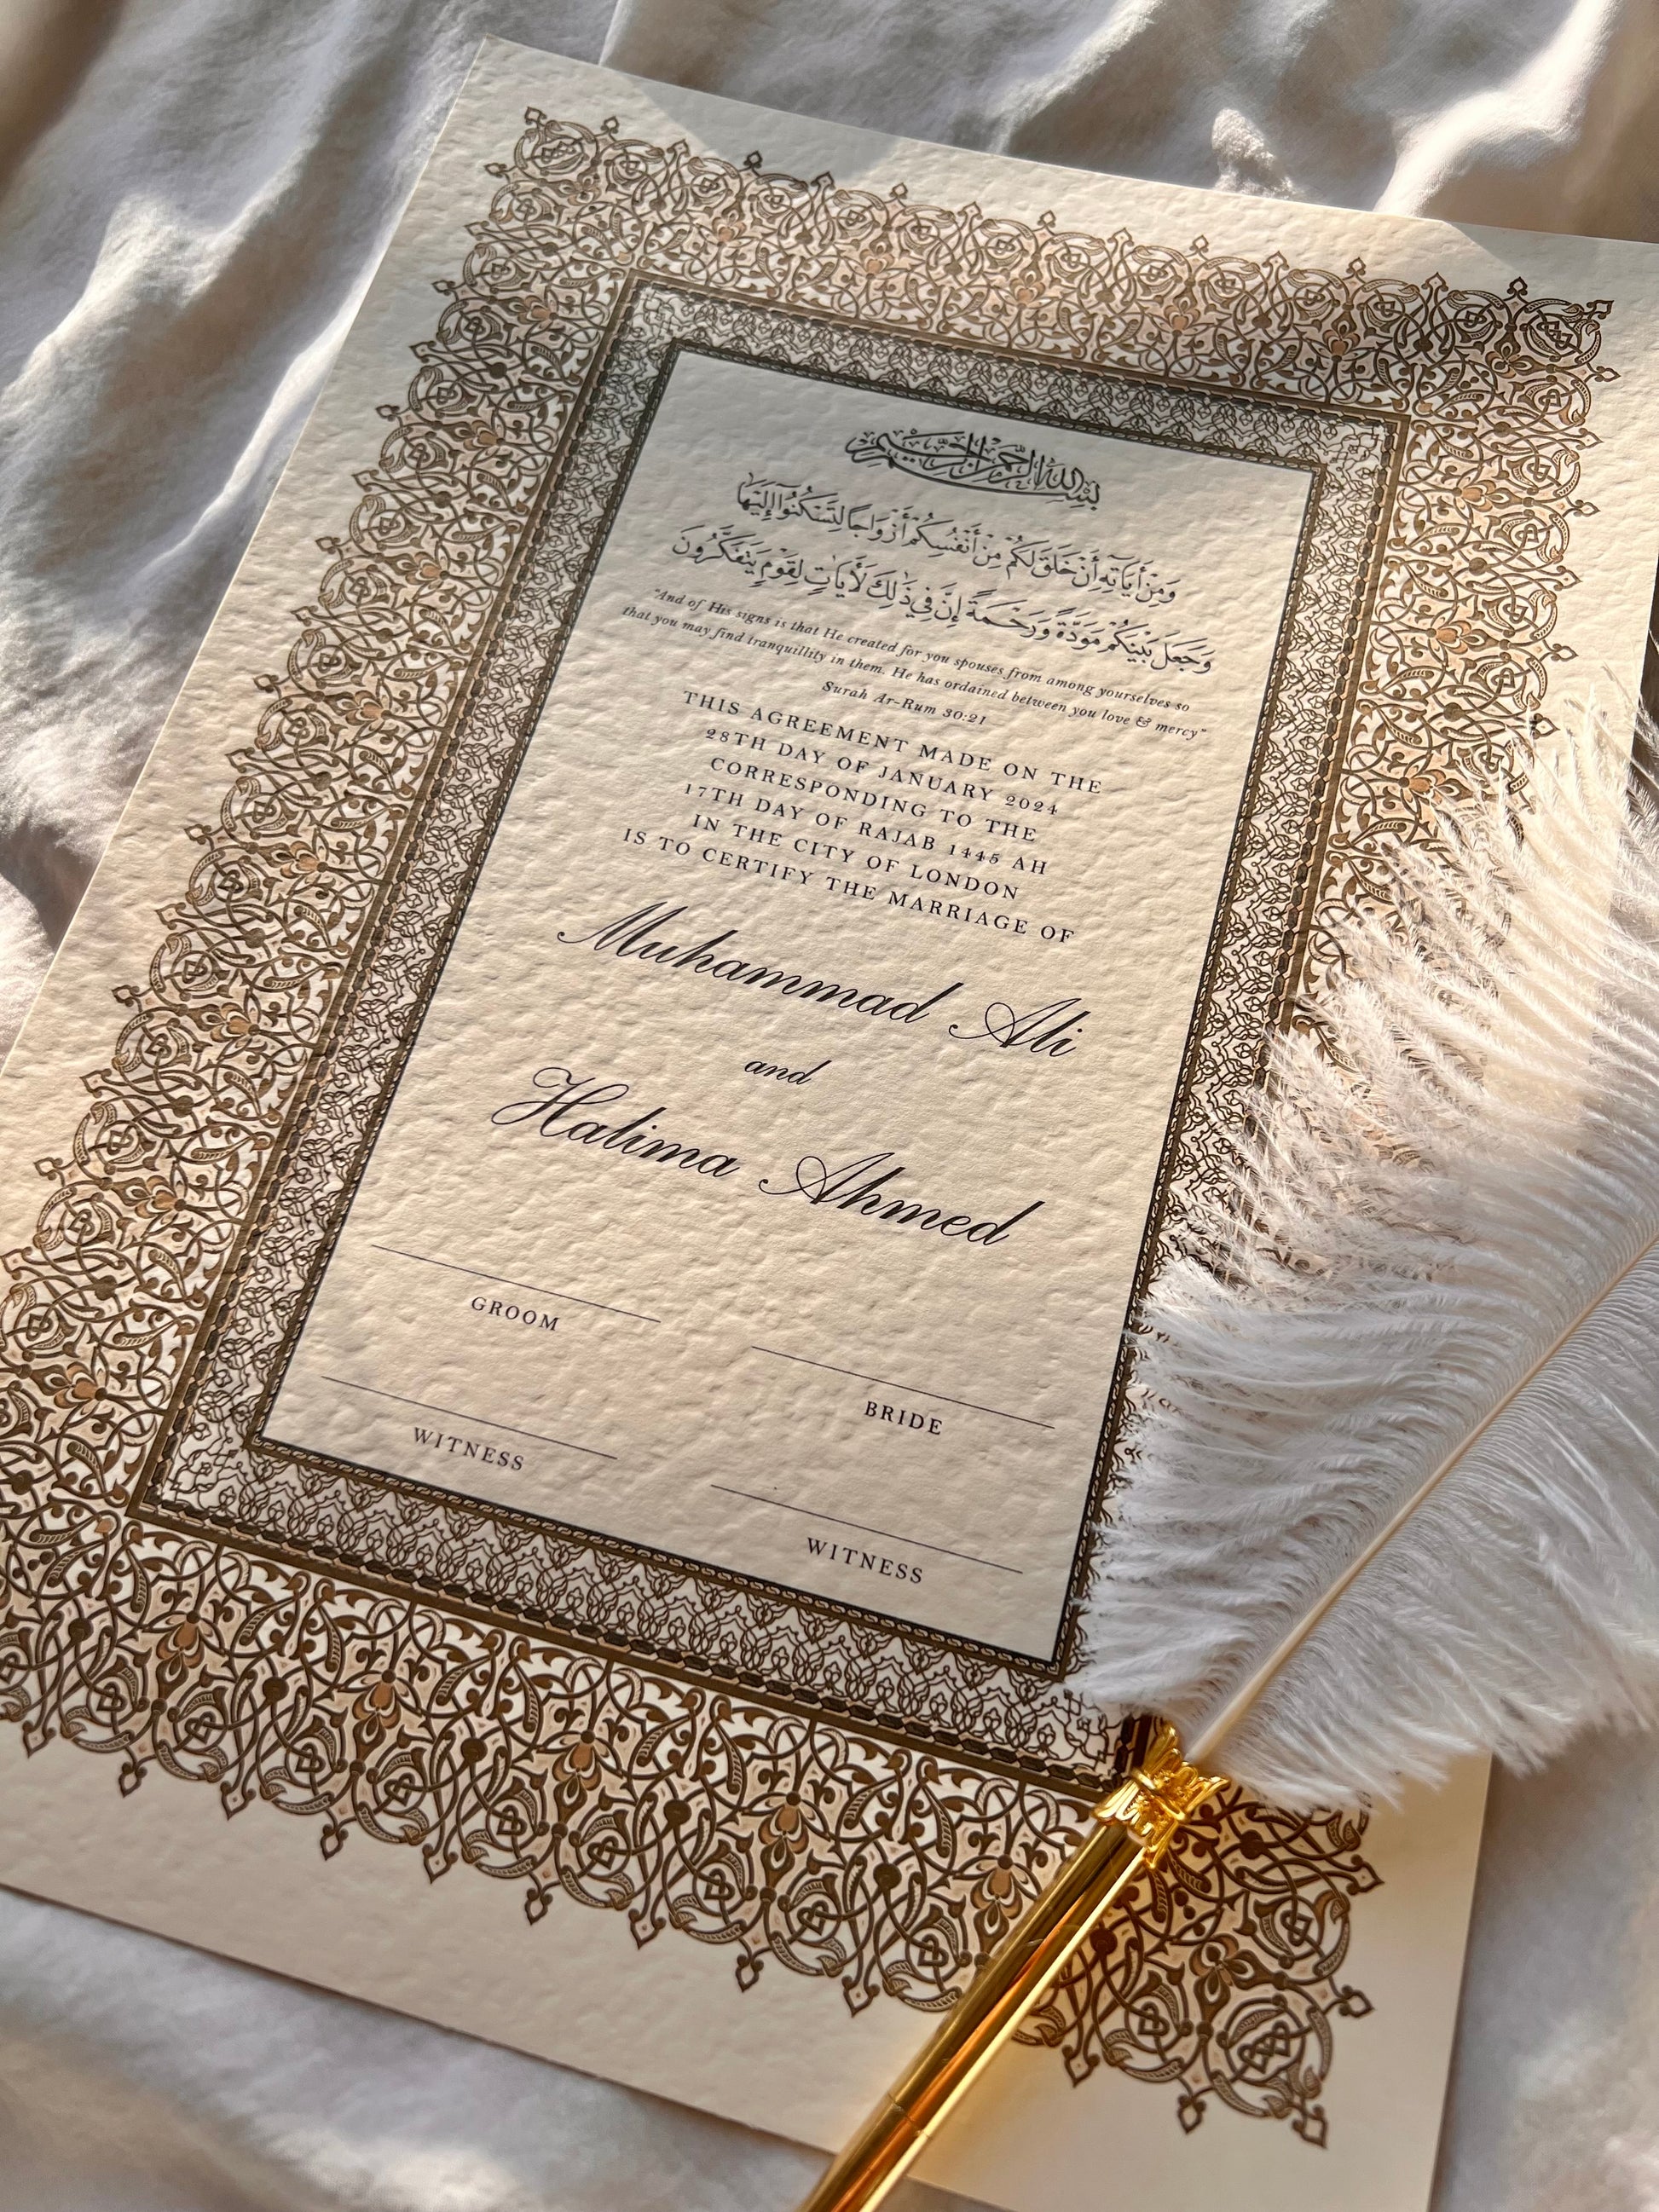 بسم الله الرحمن الرحيم
وَمِنْ أَيَاتِهِ أَنْ خَلَقَ لَكُمْ مِنْ أَنْفُسِكُمْ أَزْوَاجًا لِتَسْكُنُوا إِلَيْهَا
وَجَعَلَ بَيْنَكُمْ مَوَدَّةً وَرَحْمَةً إِنَّ فِي ذَلِكَ لَأَيَاتٍ لِقَوْمٍ يَتَفَكَّرُونَ
"And of His signs is that He created for you spouses from among yourselves so
that you may find tranquillity in them. He has ordained between you love & mercy"
Surah Ar-Rum 30:21
THIS AGREEMENT MADE ON THE
28TH DAY OF JANUARY 2024
CORRESPONDING TO THE
17TH DAY OF RAJAB 1445 AH
IN THE CITY OF LONDON
IS TO CERTIFY THE MARRIAGE OF
Muhammad Ali
and
Halima Ahmed
GROOM
BRIDE
WITNESS
WITNESS